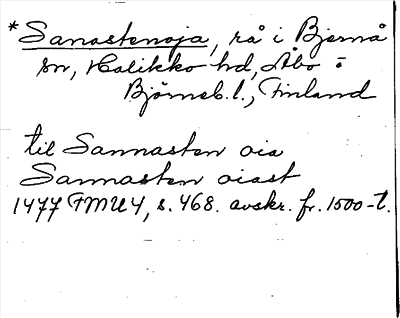 *Sanastenoja, rå i Bjernå
sn, Halikko hd, Åbo o
Björneb. l., Finland
til Sannasten oia
Sannasten oiast
1477 FMU 4, s. 468. avskr. fr. 1500-t.